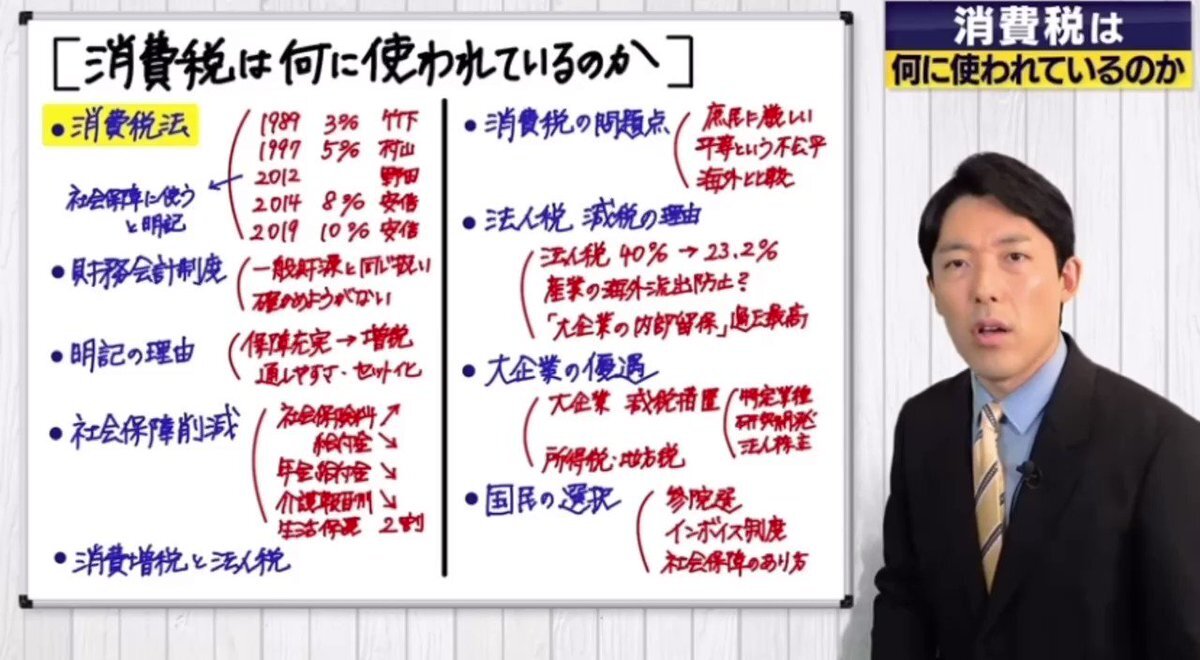 [消費税は何に使われているのか]
・消費税法
1989 3% 竹下
1997 5% 村山
2012 野田
2014 8% 安倍
2019 10% 安倍
社会保障に使う
と明記
・財務会計制度
一般財源と同じ扱い
確かめようがない
・明記の理由
保障充実→増税
通しやすさ・セット化
・社会保障削減
社会保険料↗
給付金↘
年金給付金↘
介護報酬↘
生活保護 2割
・消費増税と法人税
・消費税の問題点
庶民に厳しい
平等という不公平
海外と比較
・法人税 減税の理由
法人税 40%→23.2%
産業の海外流出防止?
「大企業の内部留保」過去最高
・大企業の優遇
大企業 減税措置
特定業種
研究開発
法人株主
所得税・地方税
・国民の選択
参院選
インボイス制度
社会保障のあり方
消費税は
何に使われているのか